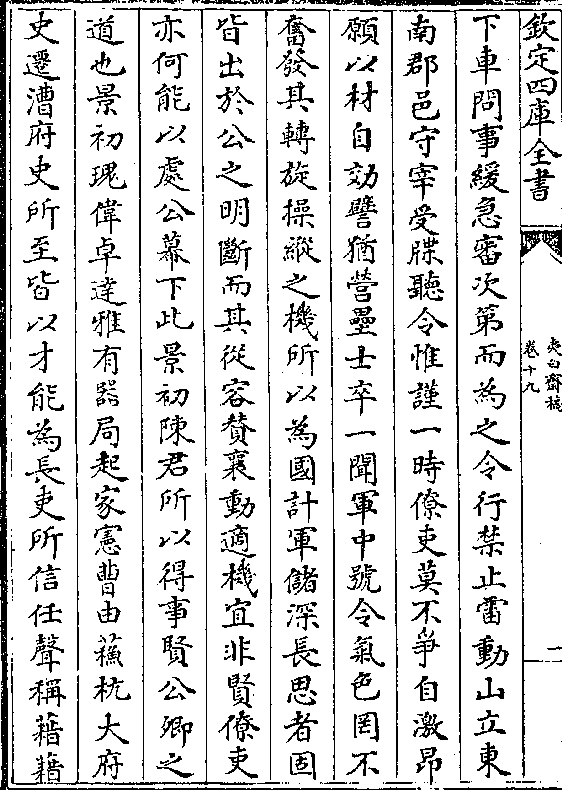 欽定四庫全書
夷白齋稿
卷十九
一
下車問事緩急審次第而為之令行禁止雷動山立東
南郡邑守宰受牒聽令惟謹一時僚吏莫不爭自激昂
願以材自効譬猶營壘士卒一聞軍中號令氣色罔不
奮發其轉旋操縱之機所以為國計軍儲深長思者固
皆出於公之明斷而其從容賛襄動適機宜非賢僚吏
亦何能以處公幕下此景初陳君所以得事賢公卿之
道也景初瑰偉卓達雅有器局起家憲曹由蘓杭大府
史遷漕府史所至皆以才能為長吏所信任聲稱藉藉